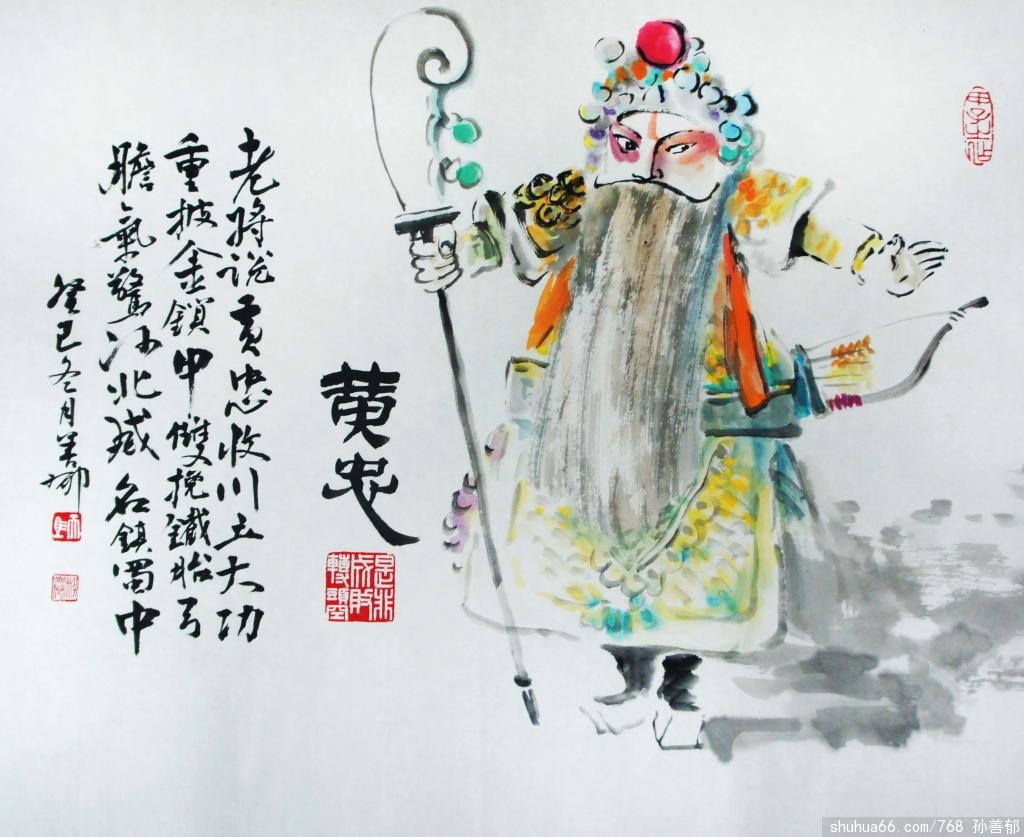 黄忠
是非
成敗
轉頭空
老將說黃忠收川立大功
重披金鎖甲雙挽鐵胎弓
膽氣驚河北威名鎮蜀中
癸巳冬月善郁
shuhua66.com/768 孙善郁